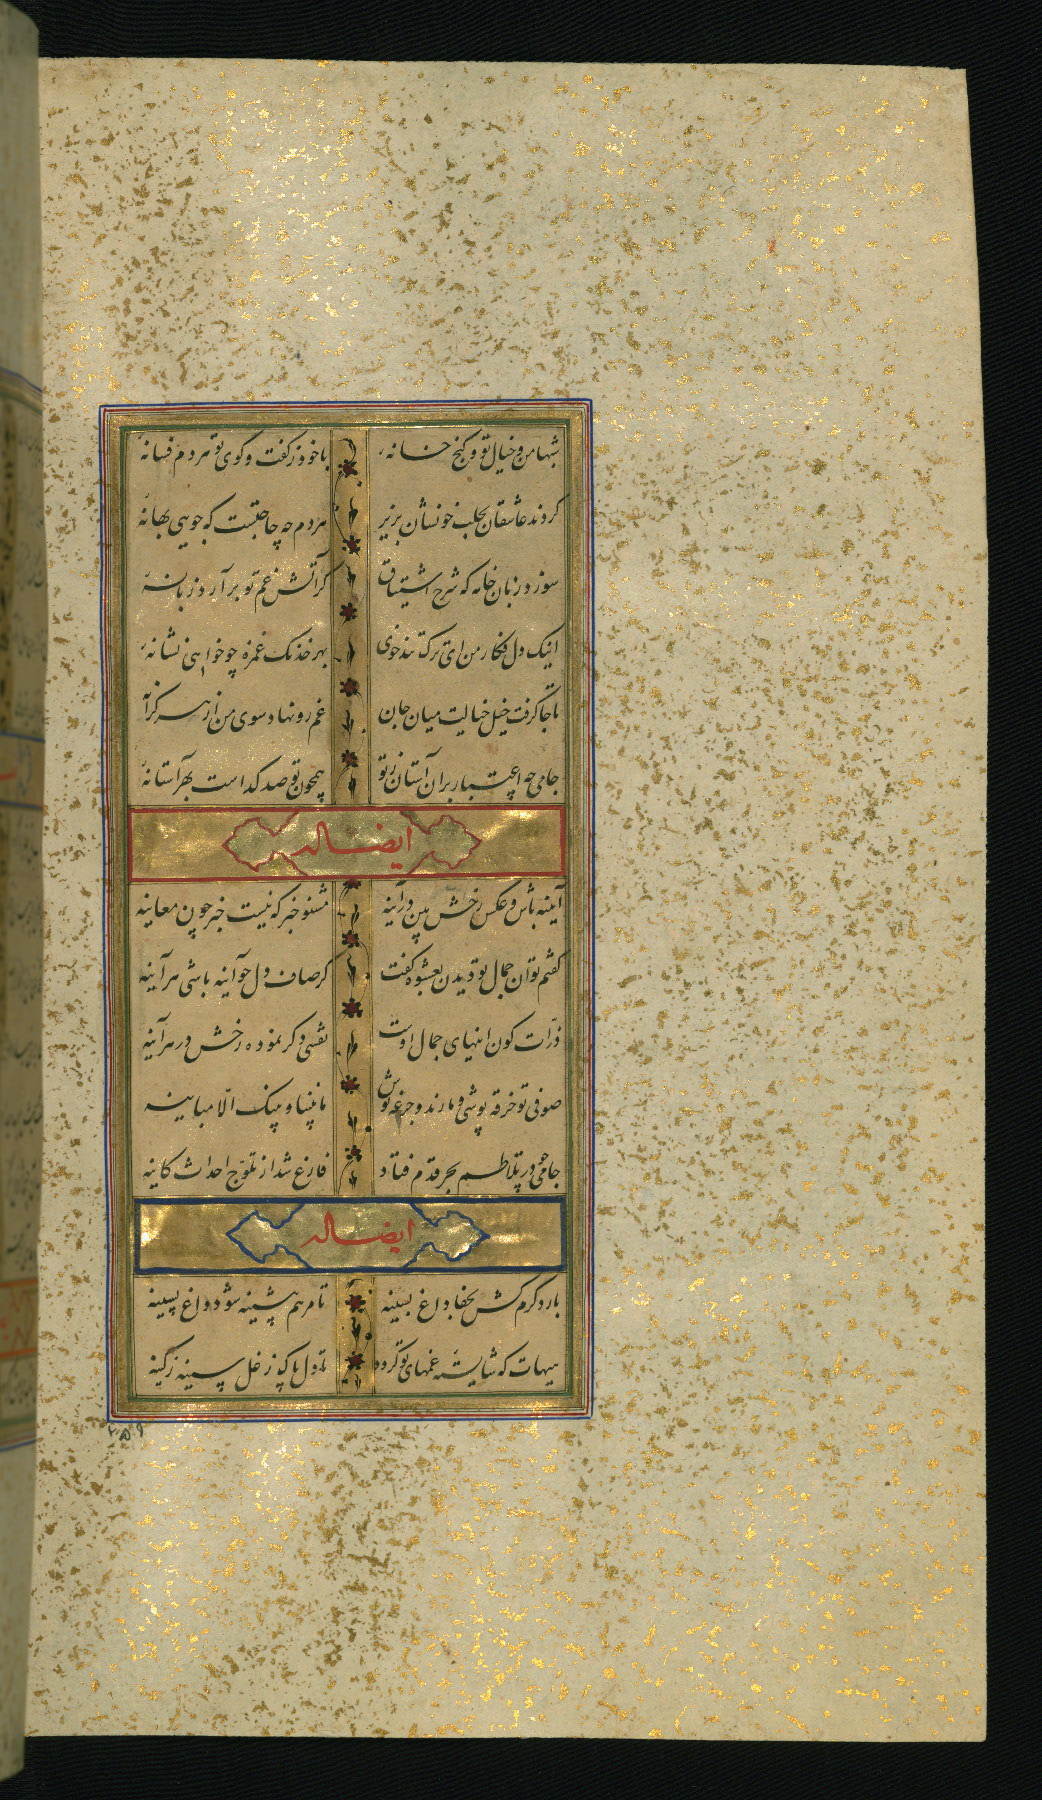 شبها من و خیال تو و کنج خانهٔ
با خود ز گفت و گوی تو هر دم فسانهٔ
کردند عاشقان بحلت خونشان بریز
هردم چه حاجتست که جویی بهانهٔ
سوزد زبان خامه که شرح اشتیاق
گر آتش غم تو برآرد زبانهٔ
اینک دل فکار من ای ترک تندخوی
بهر خدنگ غمزه چو خواهی نشانهٔ
تا جا گرفت خیل خیالت میان جان
غم رو نهاد سوی من از هر کرانهٔ
جامی چه اعتبار بران آستان ز تو
همچون تو صد گداست بهر آستانهٔ
ایضا له
آیینه باش و عکس رخش بین در آینه
مشنو خبر که نیست خبر چون معاینه
گفتم توان جمال تو دیدن بعشوه گفت
گر صاف دل چو آینه باشی هر آینه
ذرات کون آینهای جمال اوست
نقشی دگر نموده رخش در هر آینه
صوفی تو خرقه پوشی و ما رند و جرعه نوش
ما بیننا و بینک الا مباینه
جامی چو در تلاطم بحر قدم فتاد
فارغ شد از تموج احداث کاینه
ایضا له
بار دگرم کش بجفا داغ بسینه
تا مرهم پیشینه شود داغ پسینه
هیهات که شایستهٔ غمهای تو گردد
نه دل پاک ز غل سینه ز کینه
۲۵۹